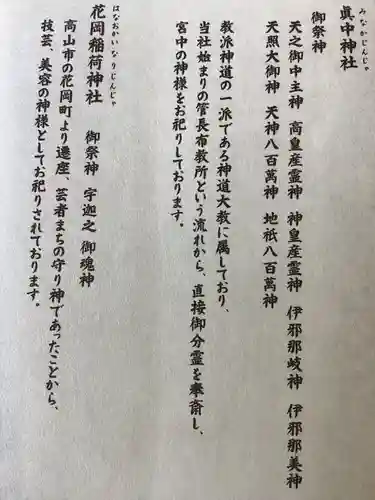 みなかじんじゃ
眞中神社
御祭神
天之御中主神 高皇産霊神 神皇産霊神 伊邪那岐神 伊邪那美神
天照大御神 天神八百萬神 地祇八百萬神
教派神道の一派である神道大教に属しており、
当社始まりの管長布教所という流れから、直接御分霊を奉斎し、
宮中の神様をお祀りしております。
はなおかいなりじんじゃ
花岡稲荷神社 御祭神 宇迦之御魂神
高山市の花岡町より遷座、芸者まちの守り神であったことから、
技芸、美容の神様としてお祀りされております。